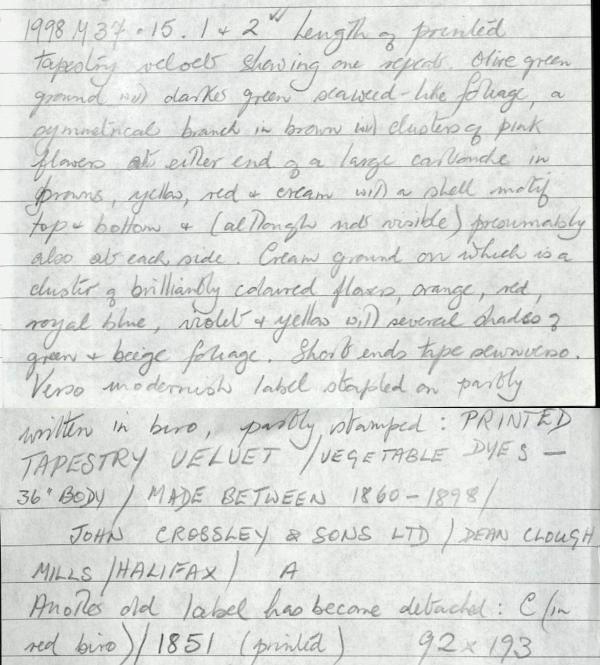 1998.M37.15.1+2 Length of printed
tapestry velvet showing one repeat. Olive green
ground with darker green seaweed-like foliage, a
symmetrical branch in brown with clusters of pink
flowers at either end of a large cartouche in
browns, yellow, red + cream with a shell motif
top + bottom + (although not visible) presumably
also at each side. Cream ground on which is a
cluster of brilliantly coloured flowers, orange, red,
royal blue, violet + yellow with several shades of
green + beige foliage. Short ends tape sewn verso.
Verso modernish label stapled on partly
written in biro, partly stamped: PRINTED
TAPESTRY VELVET / VEGETABLE DYES —
36" BODY / MADE BETWEEN 1860-1898/
JOHN CROSSLEY & SONS LTD / DEAN CLOUGH
MILLS / HALIFAX / A
Another old label has become detached: C (in
red biro) / 1851 (printed) 92 x 193